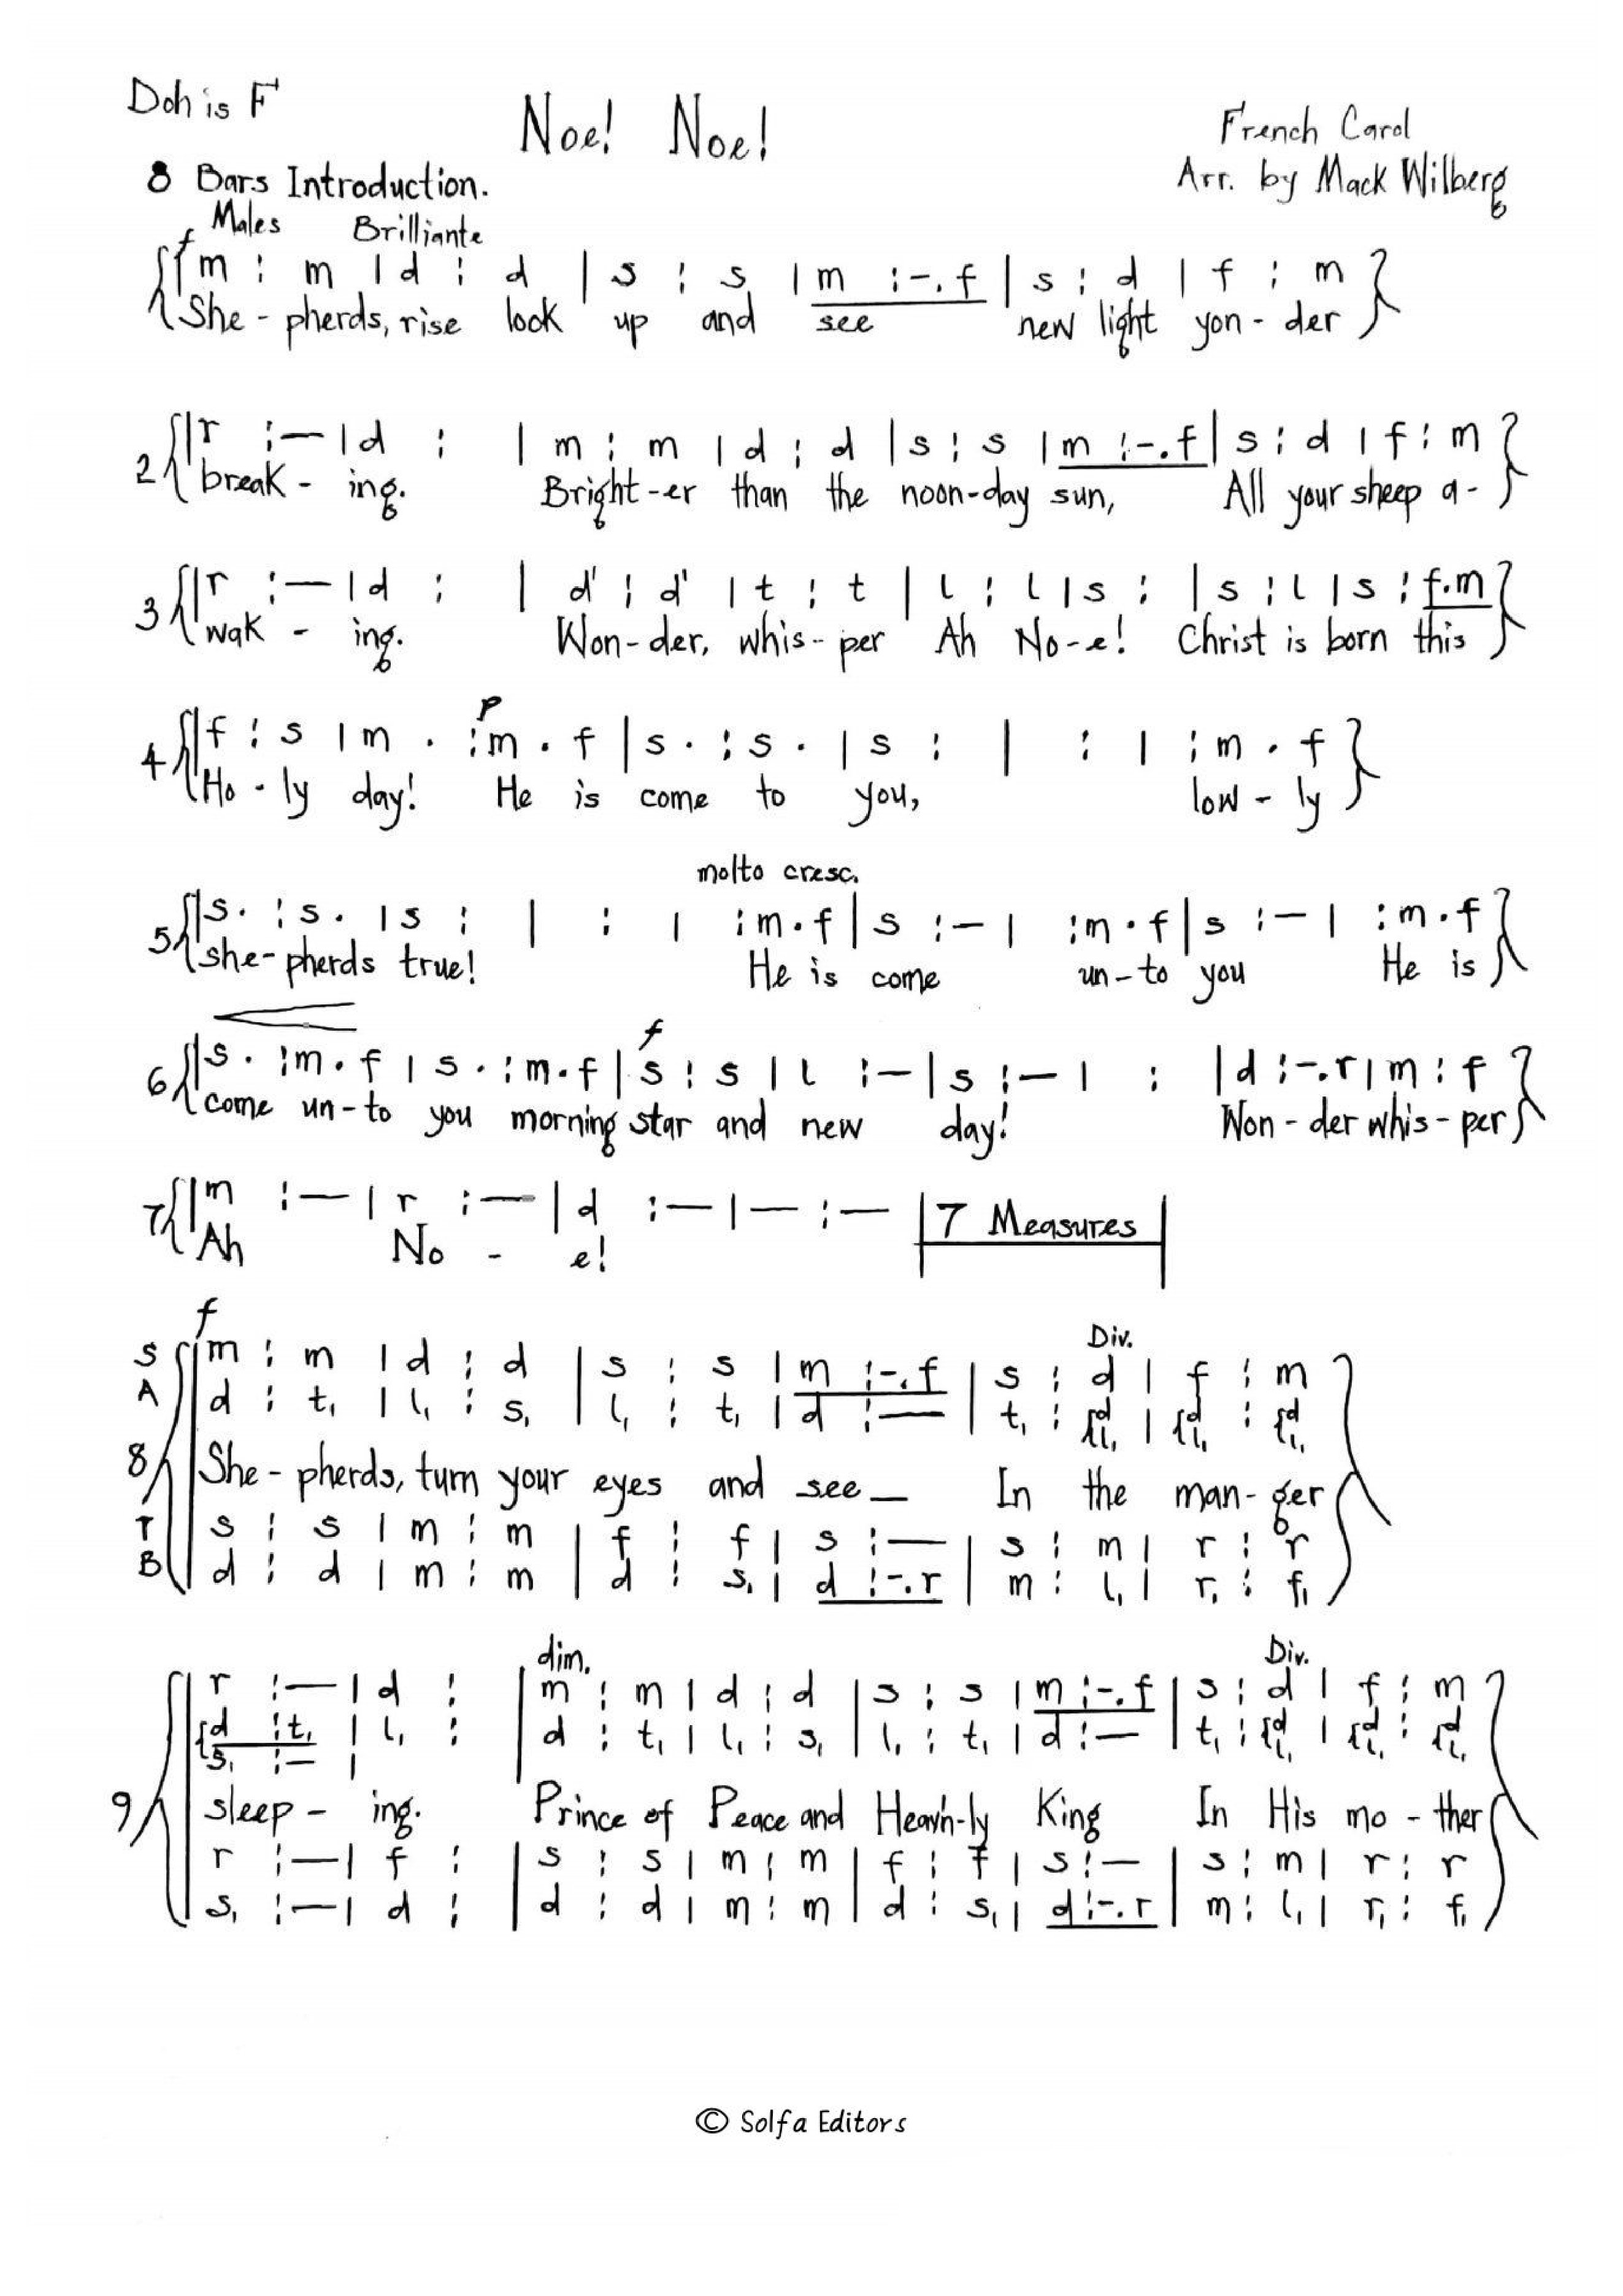 Doh is F
Noe! Noe!
French Carol
Arr. by Mack Wilberg
8 Bars Introduction.
Males Brilliante
f
m : m | d : d | s : s | m :-. f | s : d | f : m
She - pherds, rise look up and see new light yon - der
2 r :— | d : | m : m | d : d | s : s | m :-. f | s : d | f : m
break - ing. Bright-er than the noon-day sun, All your sheep a-
3 r :— | d : | d' : d' | t : t | l : l | s : | s : l | s : f.m
wak - ing. Won-der, whis-per Ah No-e! Christ is born this
p
4 f : s | m . : m . f | s . : s . | s : | : | : m . f
Ho - ly day! He is come to you, low - ly
molto cresc.
5 s . : s . | s : | : | : m . f | s :— | : m . f | s :— | : m . f
she-pherds true! He is come un-to you He is
f
6 s . : m . f | s . : m . f | s : s | l :— | s :— | : | d :-. r | m : f
come un-to you morning star and new day! Won - der whis-per
7 m :— | r :— | d :— | — :— | 7 Measures
Ah No - e!
f
Div.
S m : m | d : d | s : s | m :-. f | s : d | f : m
A d : t₁ | l₁ : s₁ | l₁ : t₁ | d :— | t₁ : {d l₁ | {d l₁ : {d l₁
8 She - pherds, turn your eyes and see — In the man - ger
T s : s | m : m | f : f | s :— | s : m | r : r
B d : d | m : m | d : s₁ | d :-. r | m : l₁ | r₁ : f₁
dim. Div.
r :— | d : | m : m | d : d | s : s | m :-. f | s : d | f : m
{d : t₁ | l₁ : | d : t₁ | l₁ : s₁ | l₁ : t₁ | d :— | t₁ : {d l₁ | {d l₁ : {d l₁
{s₁ :— |
9 sleep - ing. Prince of Peace and Heav'n-ly King In His mo - ther
r :— | f : | s : s | m : m | f : f | s :— | s : m | r : r
s₁ :— | d : | d : d | m : m | d : s₁ | d :-. r | m : l₁ | r₁ : f₁
© Solfa Editors